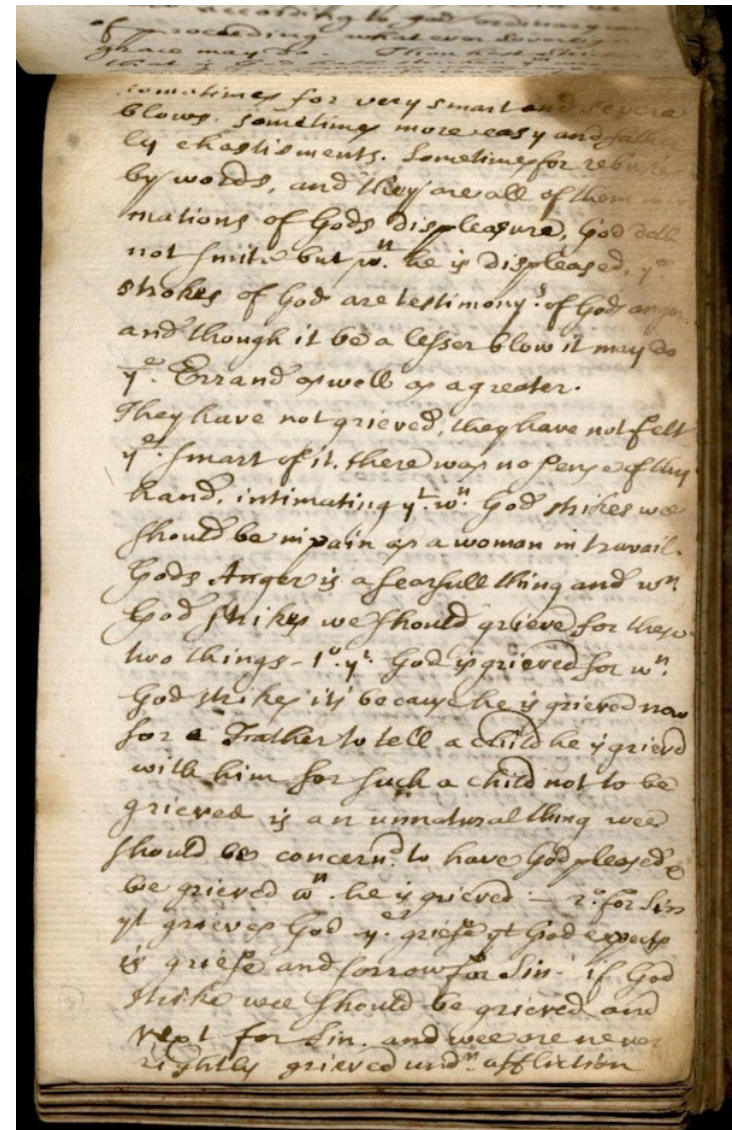 according to god ordinary
of proceeding what ever soverei
grace may do. Thou hast
that is God hath stricken ym
sometimes for very smart and severe
blows. sometimes more easy and
ly chastisments. Sometimes for rebuke
by words, and they are all of them
mations of Gods displeasure, God doth
not smite but wn. he is displeased, ye
strokes of God are testimonys. of Gods anger
and though it be a lesser blow it may do
ye. Errand as well as a greater.
They have not grieved, they have not felt
ye. smart of it. there was no sense of thy
hand. intimating yt. wn. God strikes wee
should be in pain as a woman in travail.
Gods Anger is a fearfull thing and wn.
God strikes we should grieve for these
two things - 1o. yt. God is grieved for wn.
God strikes its because he is grieved now
for a Father to tell a child he is grievd
with him for such a child not to be
grieved is an unnatural thing wee
should be concernd. to have God pleased &
be grieved wn. he is grieved — 2o. for Sin
yt grieves God ye. griefe yt God expects
is griefe and sorrow for Sin - if God
strike wee should be grieved and
vext for Sin. and wee are never
rightly grieved undr. affliction